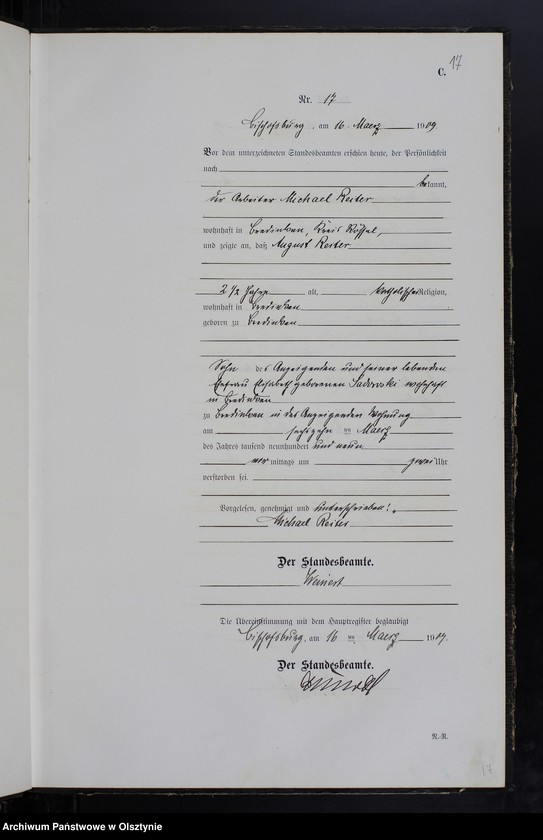 17
C.
Nr. 17
Bischofsburg, am 16 Maerz 1909.
Vor dem unterzeichneten Standesbeamten erschien heute, der Persönlichkeit
nach
bekannt,
der Arbeiter Michael Reiter
wohnhaft in Bredinken, Kreis Rößel,
und zeigte an, daß August Reiter
2 1/2 Jahre alt, katholischer Religion,
wohnhaft in Bredinken
geboren zu Bredinken
Sohn des Anzeigenden und seiner lebenden
Ehefrau Elisabeth geborenen Sadowski wohnhaft
in Bredinken
zu Bredinken in des Anzeigenden Wohnung
am sechszehn ten Maerz
des Jahres tausend neunhundert und neun
vor mittags um zwei Uhr
verstorben sei.
Vorgelesen, genehmigt und unterschrieben:
Michael Reiter
Der Standesbeamte.
Weinert
Die Übereinstimmung mit dem Hauptregister beglaubigt
Bischofsburg, am 16 ten Maerz 1909.
Der Standesbeamte.
N.-R.
17
Archiwum Państwowe w Olsztynie